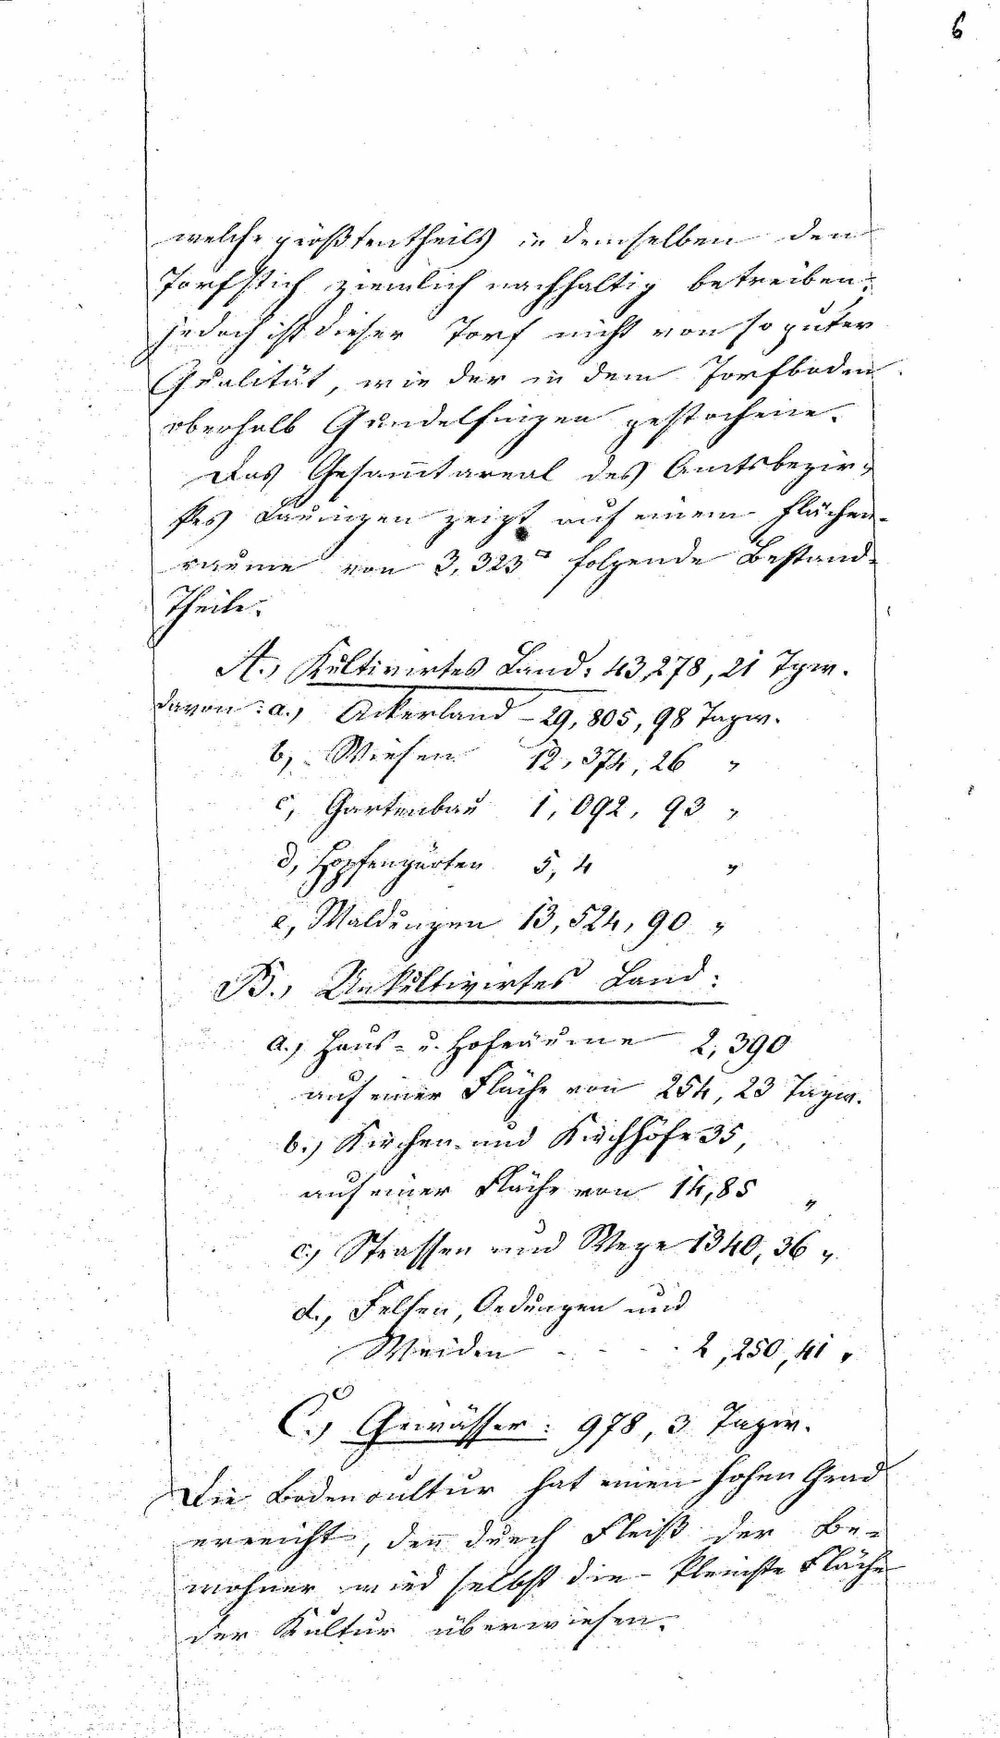 6
welche größtentheils in demselben den
Torfstich ziemlich nachhaltig betreiben;
jedoch ist dieser Torf nicht von so guter
Qualität, wie der in dem Torfboden
oberhalb Gundelfingen gestochene.
Das Gesam̄tareal des Amtsbezir-
kes Lauingen zeigt auf einem Flächen-
raume von 3,323□ folgende Bestand-
Theile:
A., Kultivirtes Land: 43,278, 21 Tgw.
davon: a., Ackerland - 29,805, 98 Tagw.
b, Wiesen 12,374, 26 "
c, Gartenbau 1,092, 93 "
d, Hopfengärten 5, 4 "
e, Waldungen 13,524, 90 "
B., Unkultivirtes Land:
a., Haus- u. Hofräume 2,390
auf einer Fläche von 254, 23 Tagw.
b.) Kirchen und Kirchhöfe 35,
auf einer Fläche von 14,85 "
c.) Strassen und Wege 1340, 36 "
d., Felsen, Oedungen und
Weiden - - - - 2,250, 41 "
C., Gewässer: 978, 3 Tagw.
Die Bodencultur hat einen hohen Grad
erreicht, den̄ durch Fleiß der Be-
wohner wird selbst die kleinste Fläche
der Kultur überwiesen.